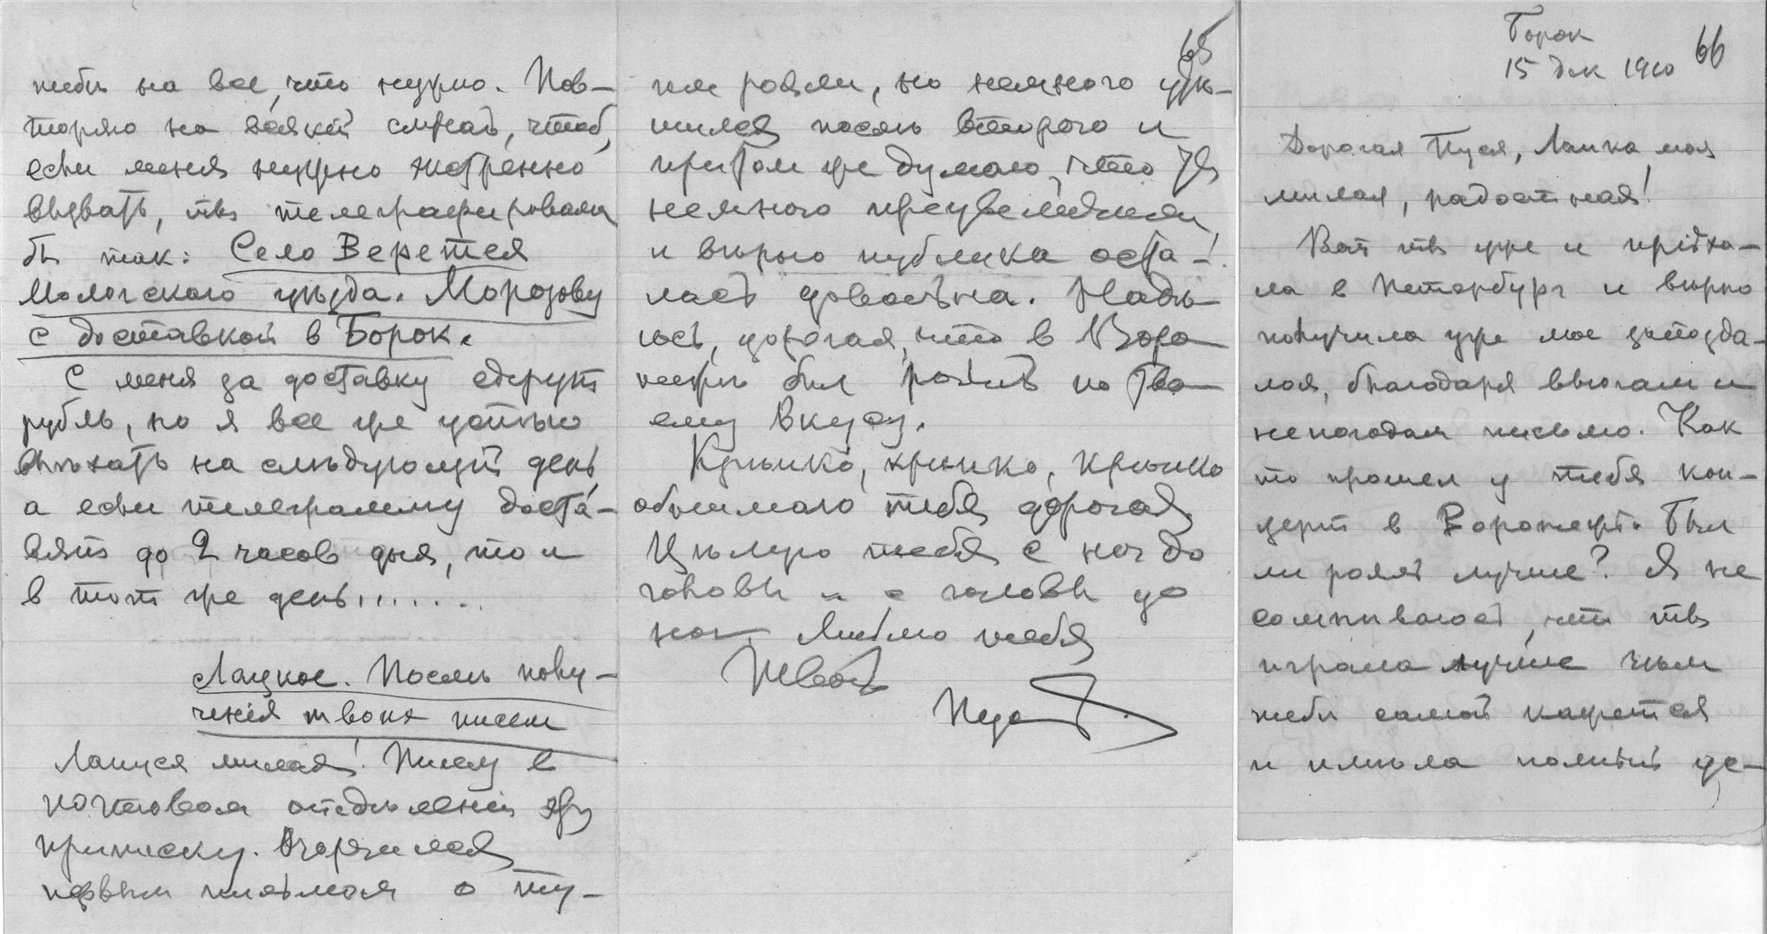 тебѣ на все, что нужно. Пов-
торяю на всякій случай, чтоб,
если меня нужно экстренно
вызвать, ты телеграфировала
бы так: Село Веретея
Мологского уѣзда. Морозову
с доставкой в Борок.
С меня за доставку сдерут
рубль, но я все же успѣю
выѣхать на слѣдующій день,
а если телеграмму доста-
вят до 2 часов дня, то и
в тот же день.......
Лацкое. Послѣ полу-
ченія твоих писем
Лапуся милая! Пишу в
почтовом отдѣленіи эту
приписку. Огорчился
первым письмом о ту-
65
гом рояли, но немного утѣ-
шился послѣ второго и
притом же думаю, что ты
немного преувеличила
и вѣрно публика оста-
лась довольна. Надѣ-
юсь, дорогая, что в Воро-
нежѣ был рояль по тво-
ему вкусу.
Крѣпко, крѣпко, крѣпко
обнимаю тебя дорогая.
Цѣлую тебя с ног до
головы и с головы до
ног. Люблю тебя
Твой
66
Борок
15 дек 1910
Дорогая Пуся, Лапка моя
милая, радостная!
Вот ты уже и пріѣха-
ла в Петербург и вѣрно
получила уже мое запозда-
лое, благодаря вьюгам и
непогодам письмо. Как
то прошел у тебя кон-
церт в Воронежѣ. Был
ли рояль лучше? Я не
сомнѣваюсь, что ты
играла лучше чѣм
тебѣ самой кажется
и имѣла полный ус-